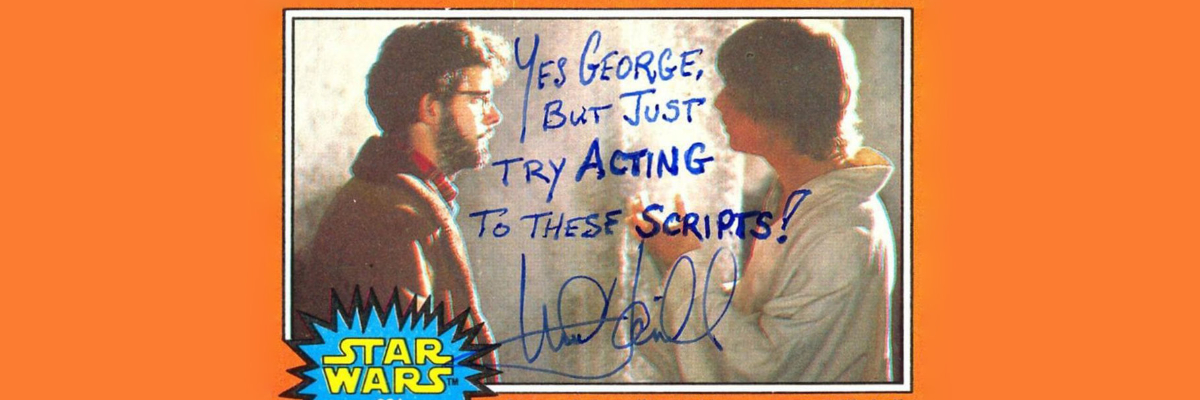 YES GEORGE,
BUT JUST
TRY ACTING
TO THESE SCRIPTS!
STAR
WARS™